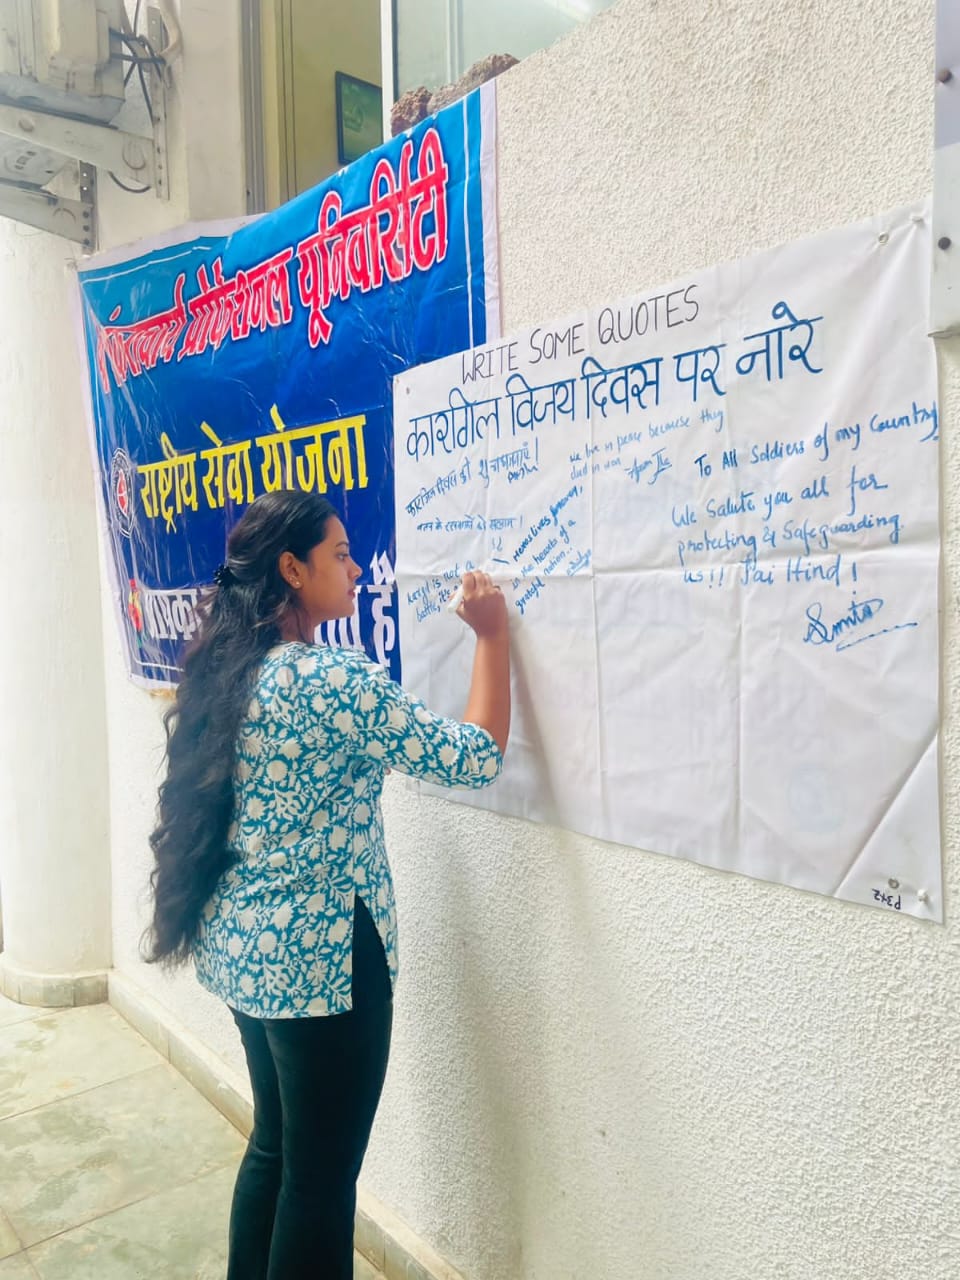 शंकराचार्य प्रोफेशनल यूनिवर्सिटी
राष्ट्रीय सेवा योजना
आपका
है
WRITE SOME QUOTES
कारगिल विजय दिवस पर नारे
कारगिल दिवस की शुभकामनाएँ!
We live in peace because they
died in war
To All Soldiers of my Country
We Salute you all for
protecting & Safeguarding
us!! Jai Hind!
Smita
Heroes lives forever,
in the hearts of a
grateful nation..
Kargil is not a
battle, it's